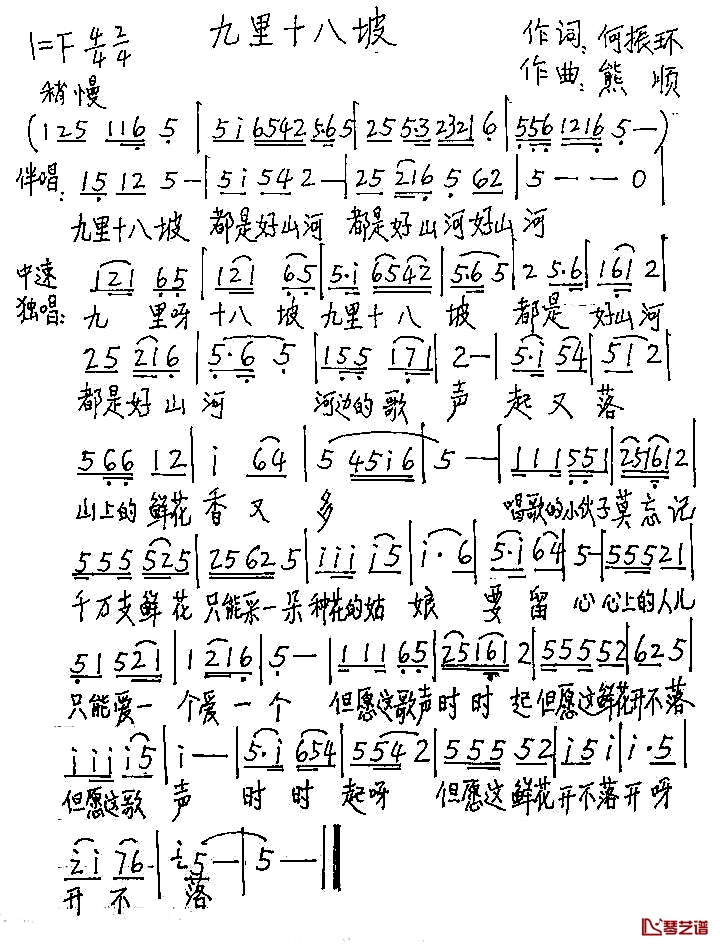 九里十八坡
1=F 4/4 2/4
作词:何振环
作曲:熊顺
稍慢
(125 116 5 | 5i 6542 5·65 | 25 5·3 2321 6 | 556 1216 5 —)
伴唱: 15 12 5 — | 5i 54 2 — | 25 216 5 62 | 5 — — 0 |
九里十八坡 都是好山河 都是好山河好山河
中速
独唱: 121 65 | 121 65 | 5·i 6542 | 5·6 5 | 2 5·6 | 161 2 |
九里呀十八坡九里十八坡 都是好山河
25 216 | 5·6 5 | 155 171 | 2 — | 5·i 54 | 51 2 |
都是好山河 河边的歌声起又落
566 12 | i 64 | 5 45i6 | 5 — | 111 551 | 25161 2 |
山上的鲜花香又多 唱歌的小伙子莫忘记
555 525 | 2562 5 | iii i5 | i· 6 | 5·i 64 | 5 — | 555521 |
千万支鲜花只能采一朵种花的姑娘要留心心上的人儿
51 521 | 1 216 | 5 — | 111 65 | 25161 2 | 555552 | 62 5 |
只能爱一个爱一个 但愿这歌声时时起但愿这鲜花开不落
iii i5 | i — — | 5·i 654 | 554 2 | 555 52 | i5i | i·5 |
但愿这歌声时时起呀 但愿这鲜花开不落开呀
ii 76 | i5 — | 5 — ‖
开不落
琴艺谱